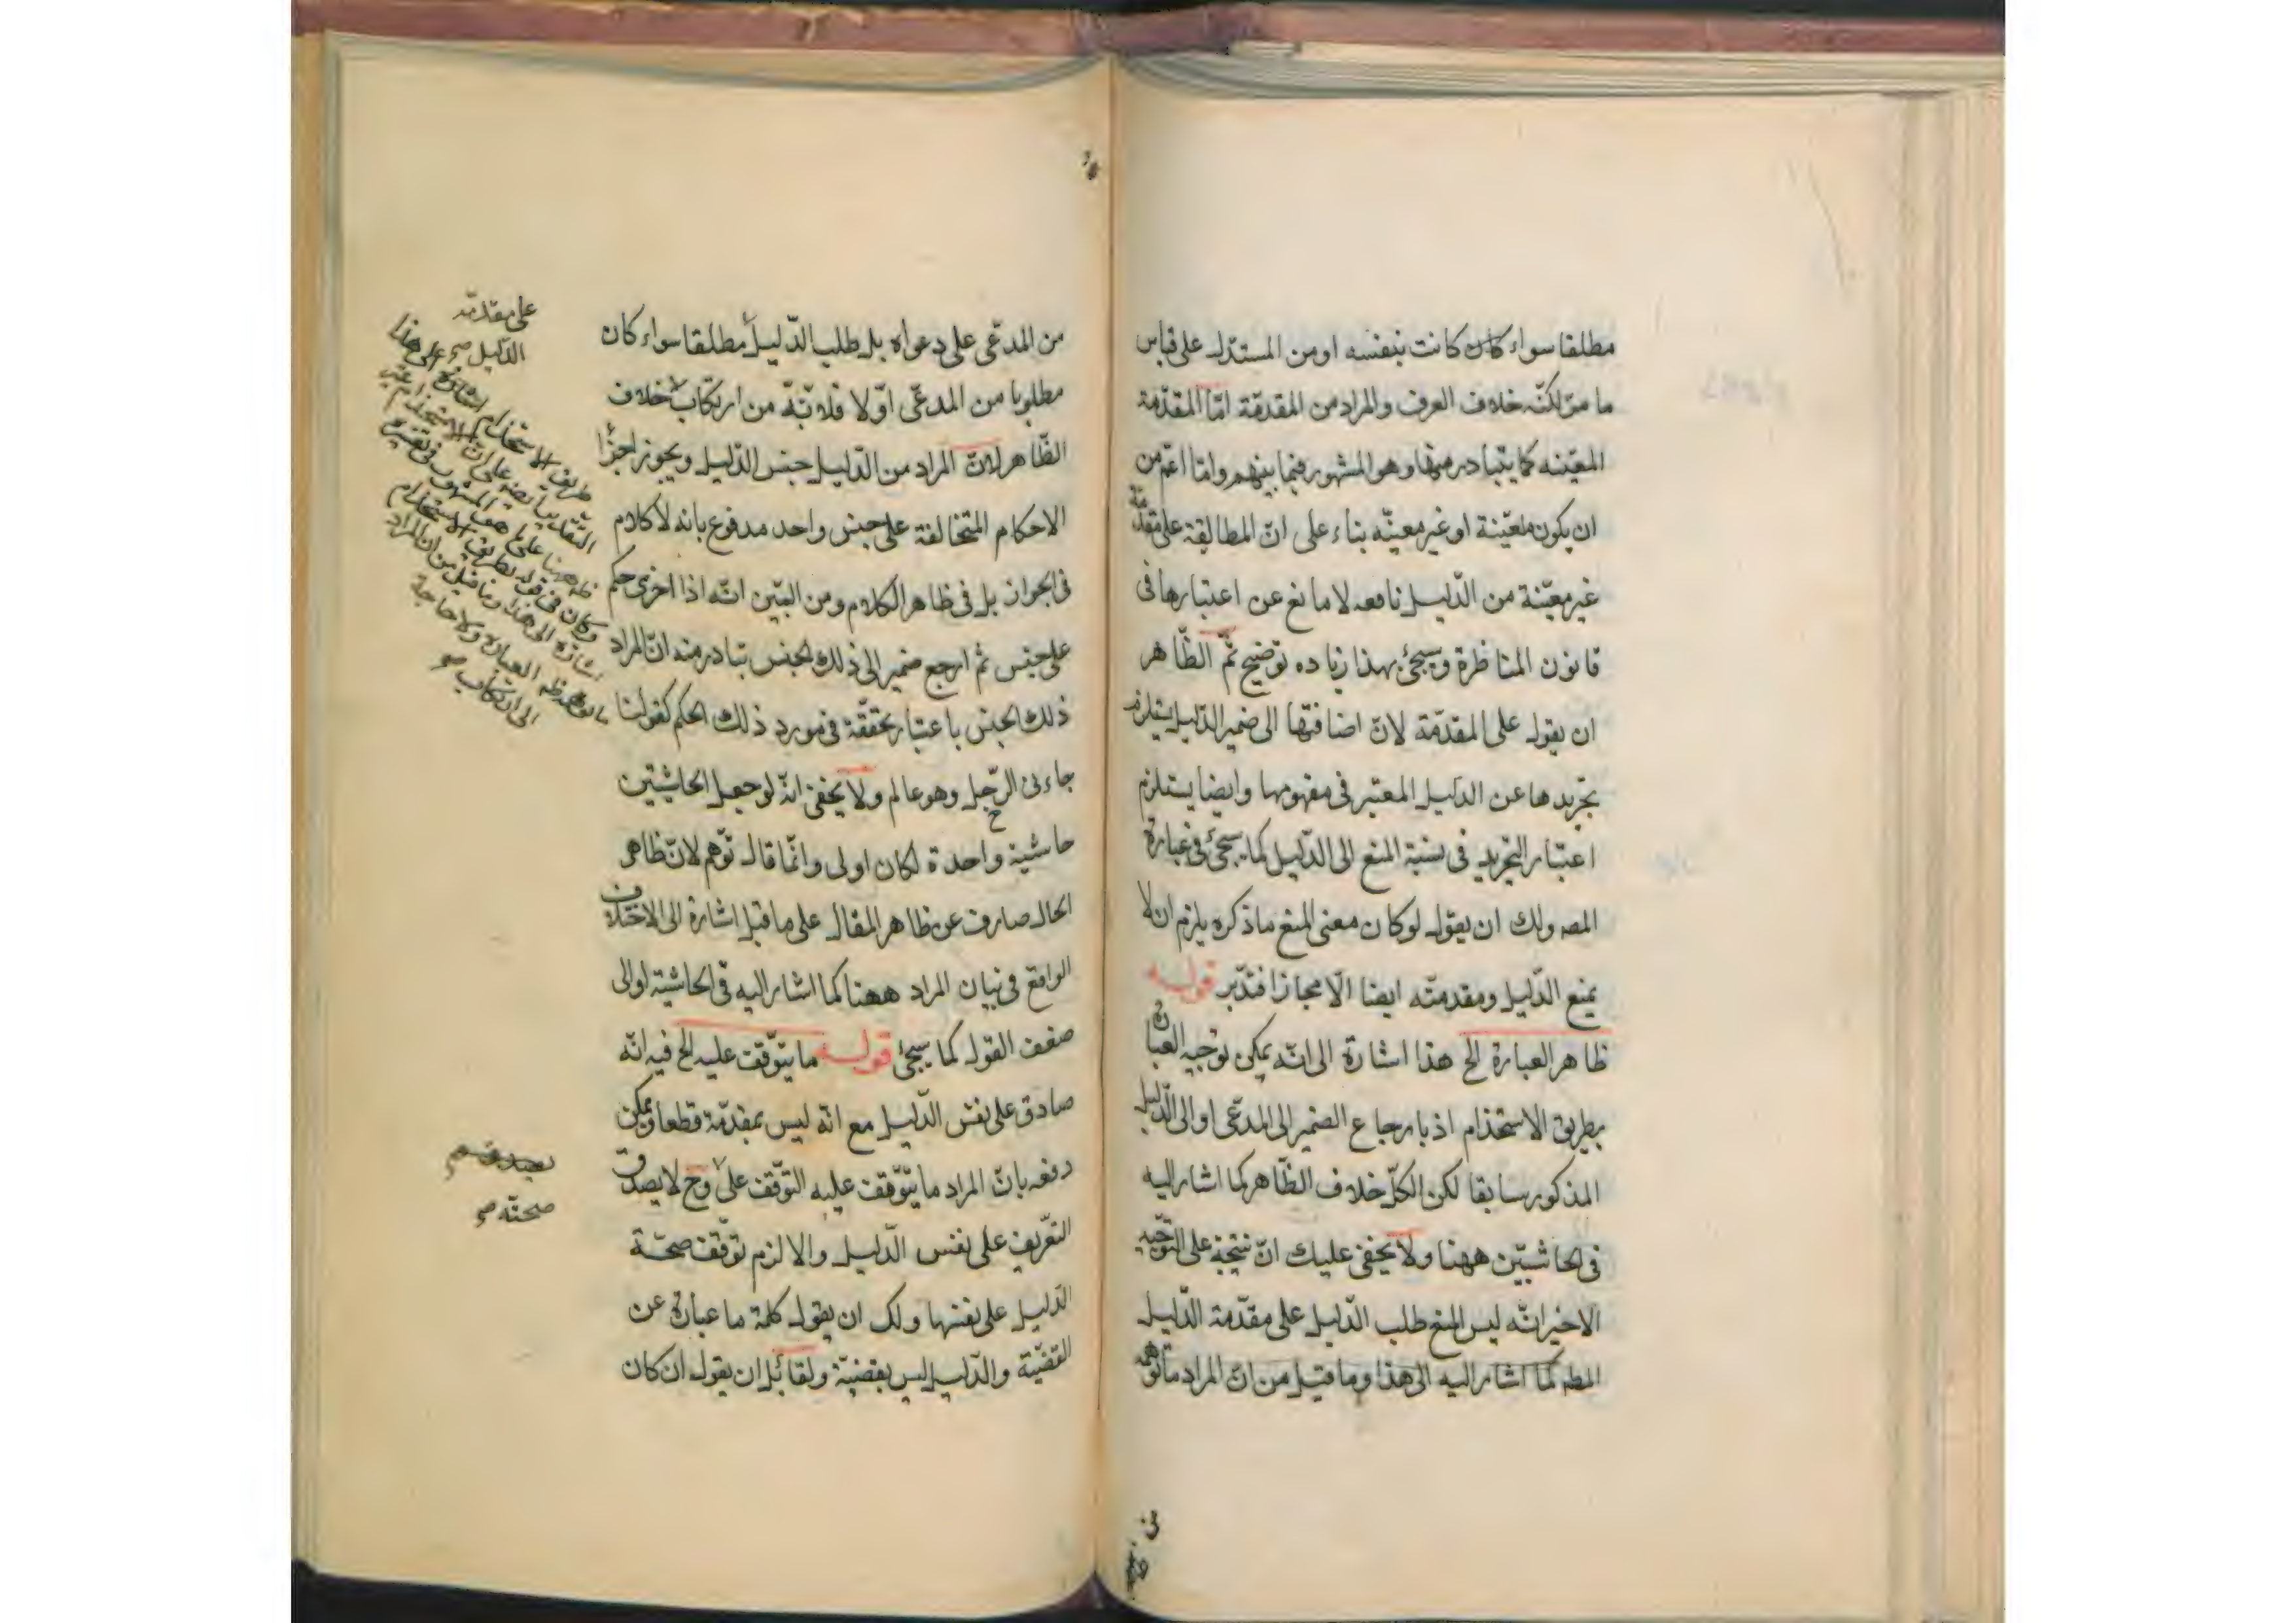 مطلقا سواء كان كانت بنفسه او من المستدل على قياس
ما مرّ لكنّه خلاف العرف والمراد من المقدمة امّا المقدّمة
المعيّنه كما يتبادر منها وهو المشهور فيما بينهم وامّا اعمّ من
ان يكون معيّنة او غير معيّنه بناء على انّ المطالبة على مقدّمة
غير معيّنة من الدّليل نافعه لا مانع عن اعتبارها فى
قانون المناظرة وسيجئ بهذا زياده توضيح ثمّ الظّاهر
ان يقول على المقدّمة لانّ اضافتها الى ضمير الدّليل يستلزم
تجريدها عن الدليل المعتبر فى مفهومها وايضا يستلزم
اعتبار التجريد فى نسبة المنع الى الدّليل كما سيجئ فى عبارة
المصه ولك ان يقول لو كان معنى المنع ما ذكره يلزم ان لا
يمنع الدّليل ومقدمته ايضا الّا مجازا فتدبّر قوله
ظاهر العبارة الخ هذا اشارة الى انّه يمكن توجيه العبارة
بطريق الاستخذام اذ بارجاع الضمير الى المدعى او الى الدّليل
المذكور سابقا لكن الكلّ خلاف الظّاهر كما اشار اليه
فى الحاشيتين ههنا ولا يخفى عليك انّ نتيجة على التوجيه
الاخير انّه ليس المنع طلب الدّليل على مقدّمة الدّليل
المطه كما اشار اليه الى هذا وما قيل من انّ المراد ما توهمه
من المدعى على دعواه بل طلب الدّليل مطلقا سواء كان
مطلوبا من المدعى اوّلا فلا بدّ من ارتكاب خلاف
الظّاهر لانّ المراد من الدّليل جنس الدّليل ويجوز اجرأ
الاحكام المتخالفة على جنس واحد مدفوع بانه لا كلام
فى الجواز بل فى ظاهر الكلام ومن البيّن انّه اذا اجرى حكم
على جنس ثم ارجع ضمير الى ذلك الجنس تبادر منه انّ المراد
ذلك الجنس باعتبار تحققه فى مورد ذلك الحكم كقولنا
جاءنى الرّجل وهو عالم ولا يخفى انّه لو جعل الحاشيتين
حاشية واحدة لكان اولى وانّما قال توّهم لانّ ظاهر
الحال صارف عن ظاهر المقال على ما قيل اشارة الى الاختلاف
الواقع فى بيان المراد ههنا كما اشار اليه فى الحاشية اولى
ضعف القول كما سيجئ قوله ما يتوّقف عليه الخ فيه انّه
صادق على نفس الدّليل مع انّه ليس بمقدّمة قطعا ويمكن
دفعه بانّ المراد ما يتوّقف عليه التوّقف على وح لا يصدق
التعّريف على نفس الدّليل والا لزم توّقف صحّة
الدّليل على نفسها ولك ان يقول كلمة ما عبارة عن
القضيّة والدّليل ليس بقضيّة ولقائل ان يقول ان كان
على مقدّمة
الدّليل صح
طريق الاستخذام اشارة الى هذا
وكان فى قوله بطريق الاستخذام
اشارة الى هذا وما قيل من ان المراد
ما توهمه العبارة ولا حاجة
الى ارتكاب صح
صحّته صح